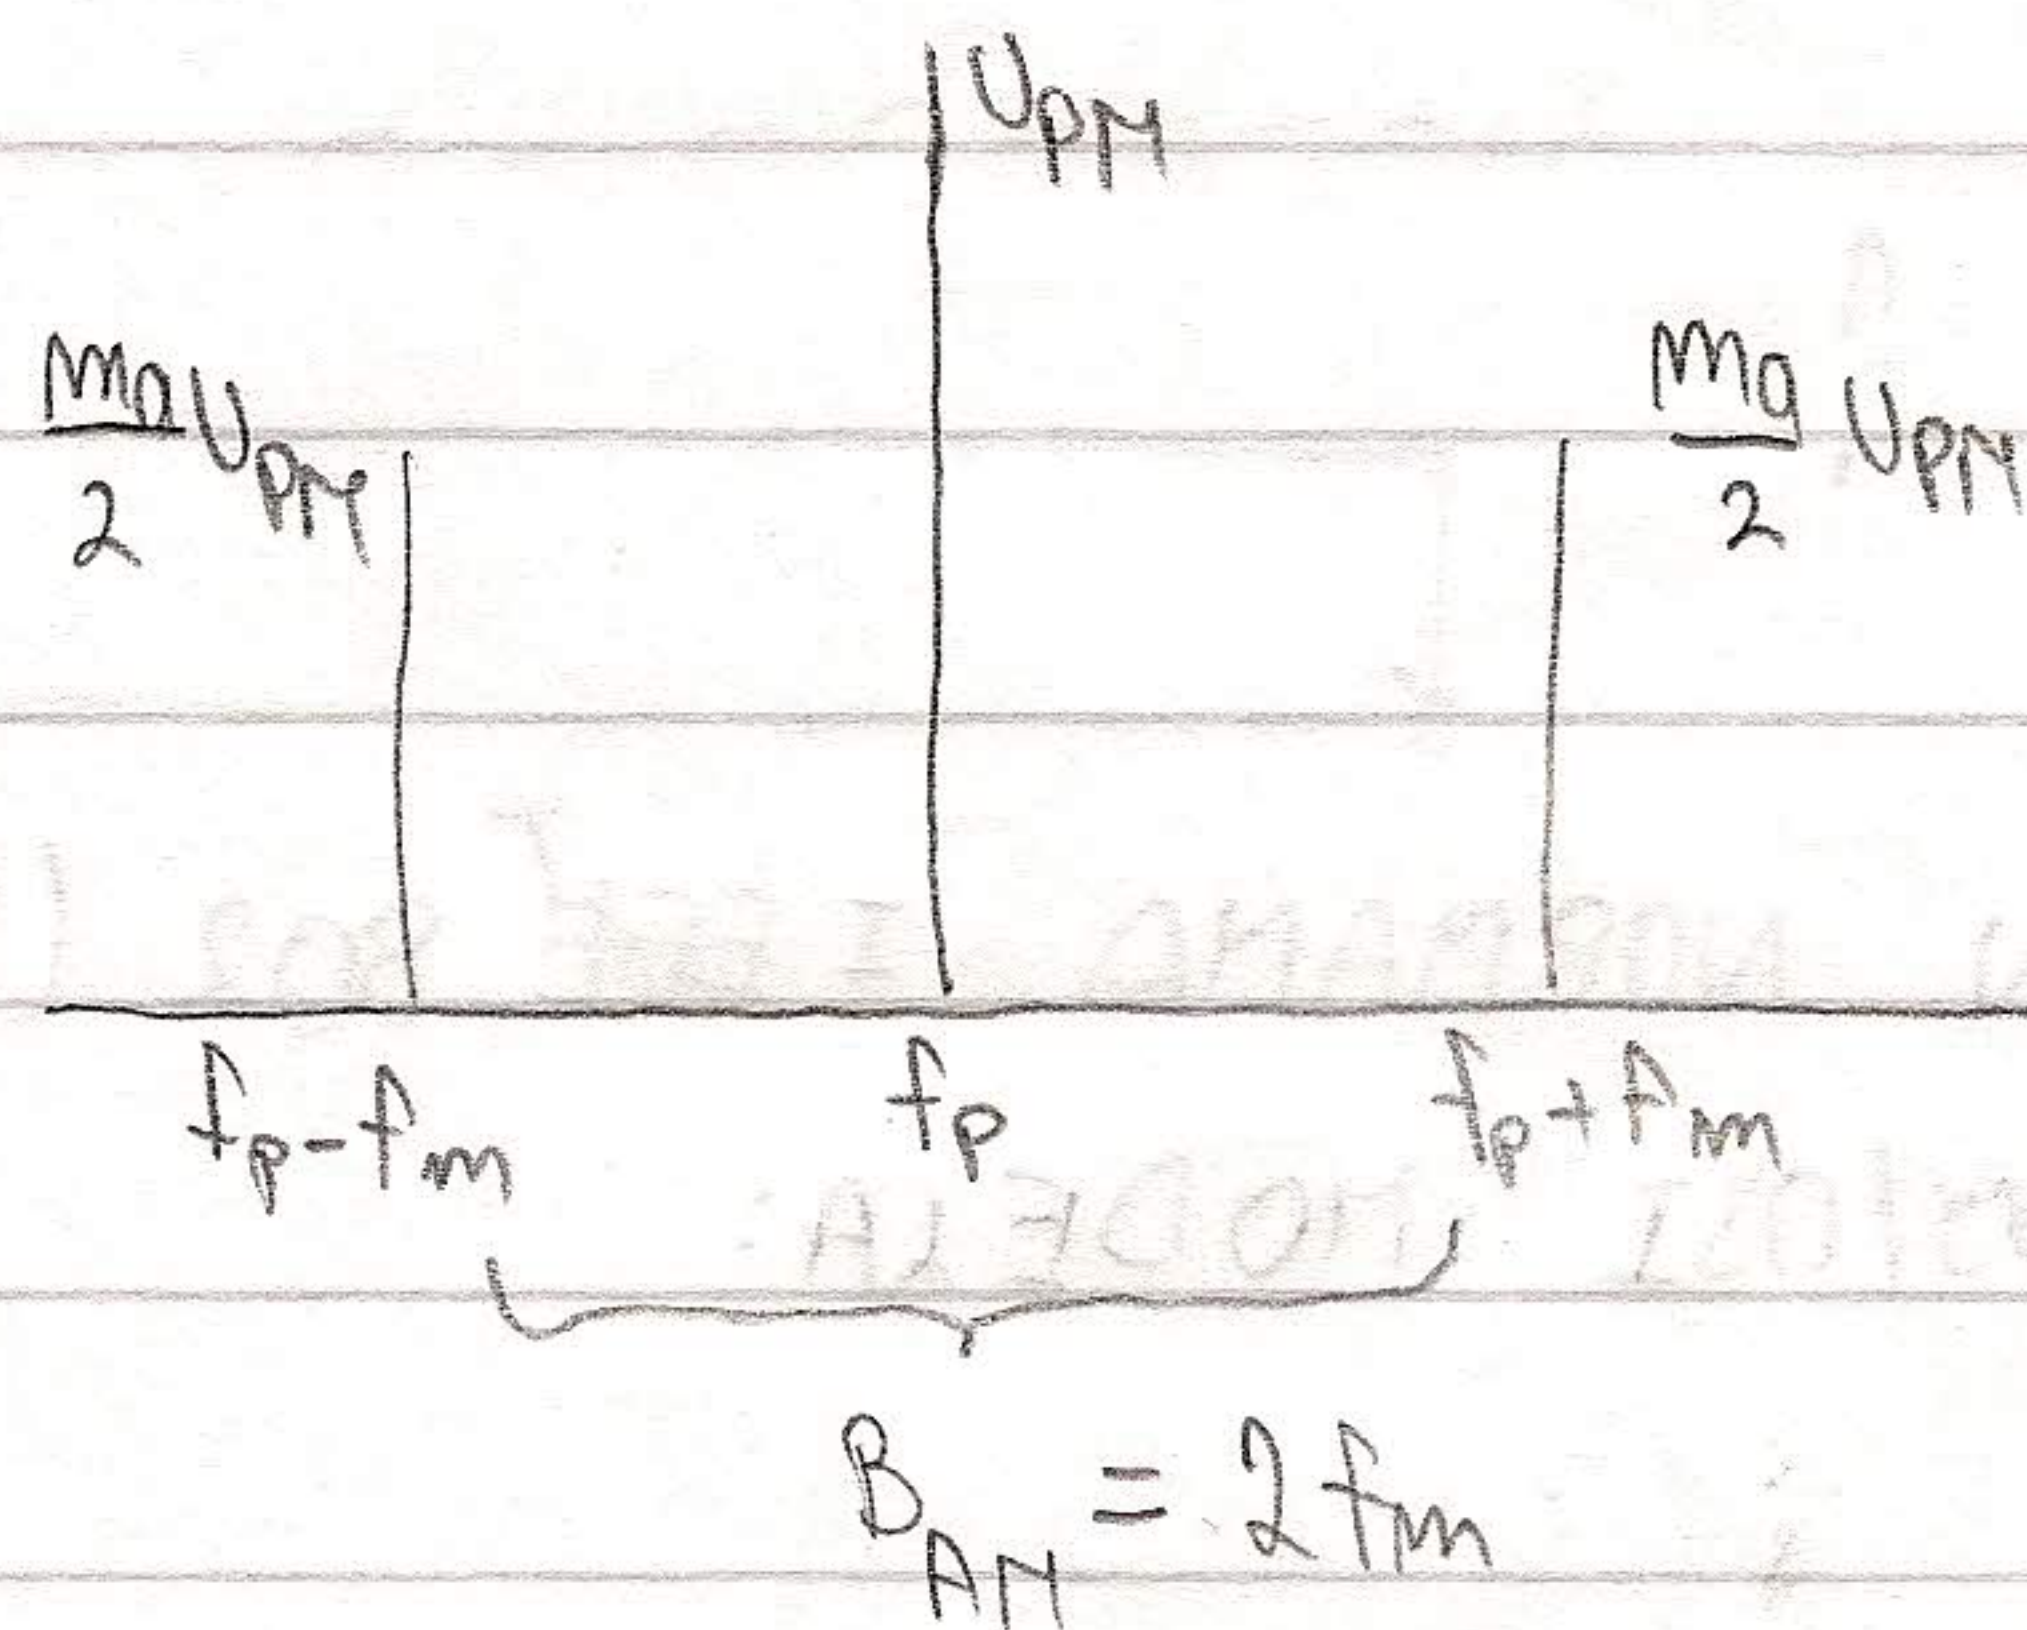 U_PM
ma/2 U_PM
ma/2 U_PM
fp-fm
fp
fp+fm
B_AM = 2fm